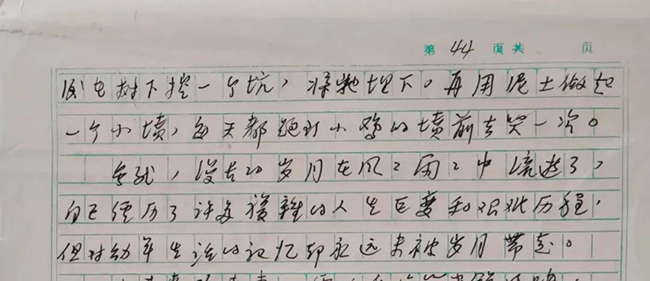 第 44 页共 页
便在树下挖一个坑，将她埋下。再用泥土做起
一个小坟，每天都跑到小鸡的坟前去哭一次。
漫长的岁月在风风雨雨中流逝了，
自己经历了许多复雜的人生巨变和艰难历程，
但对幼年生活的记忆却永远未被岁月带走。